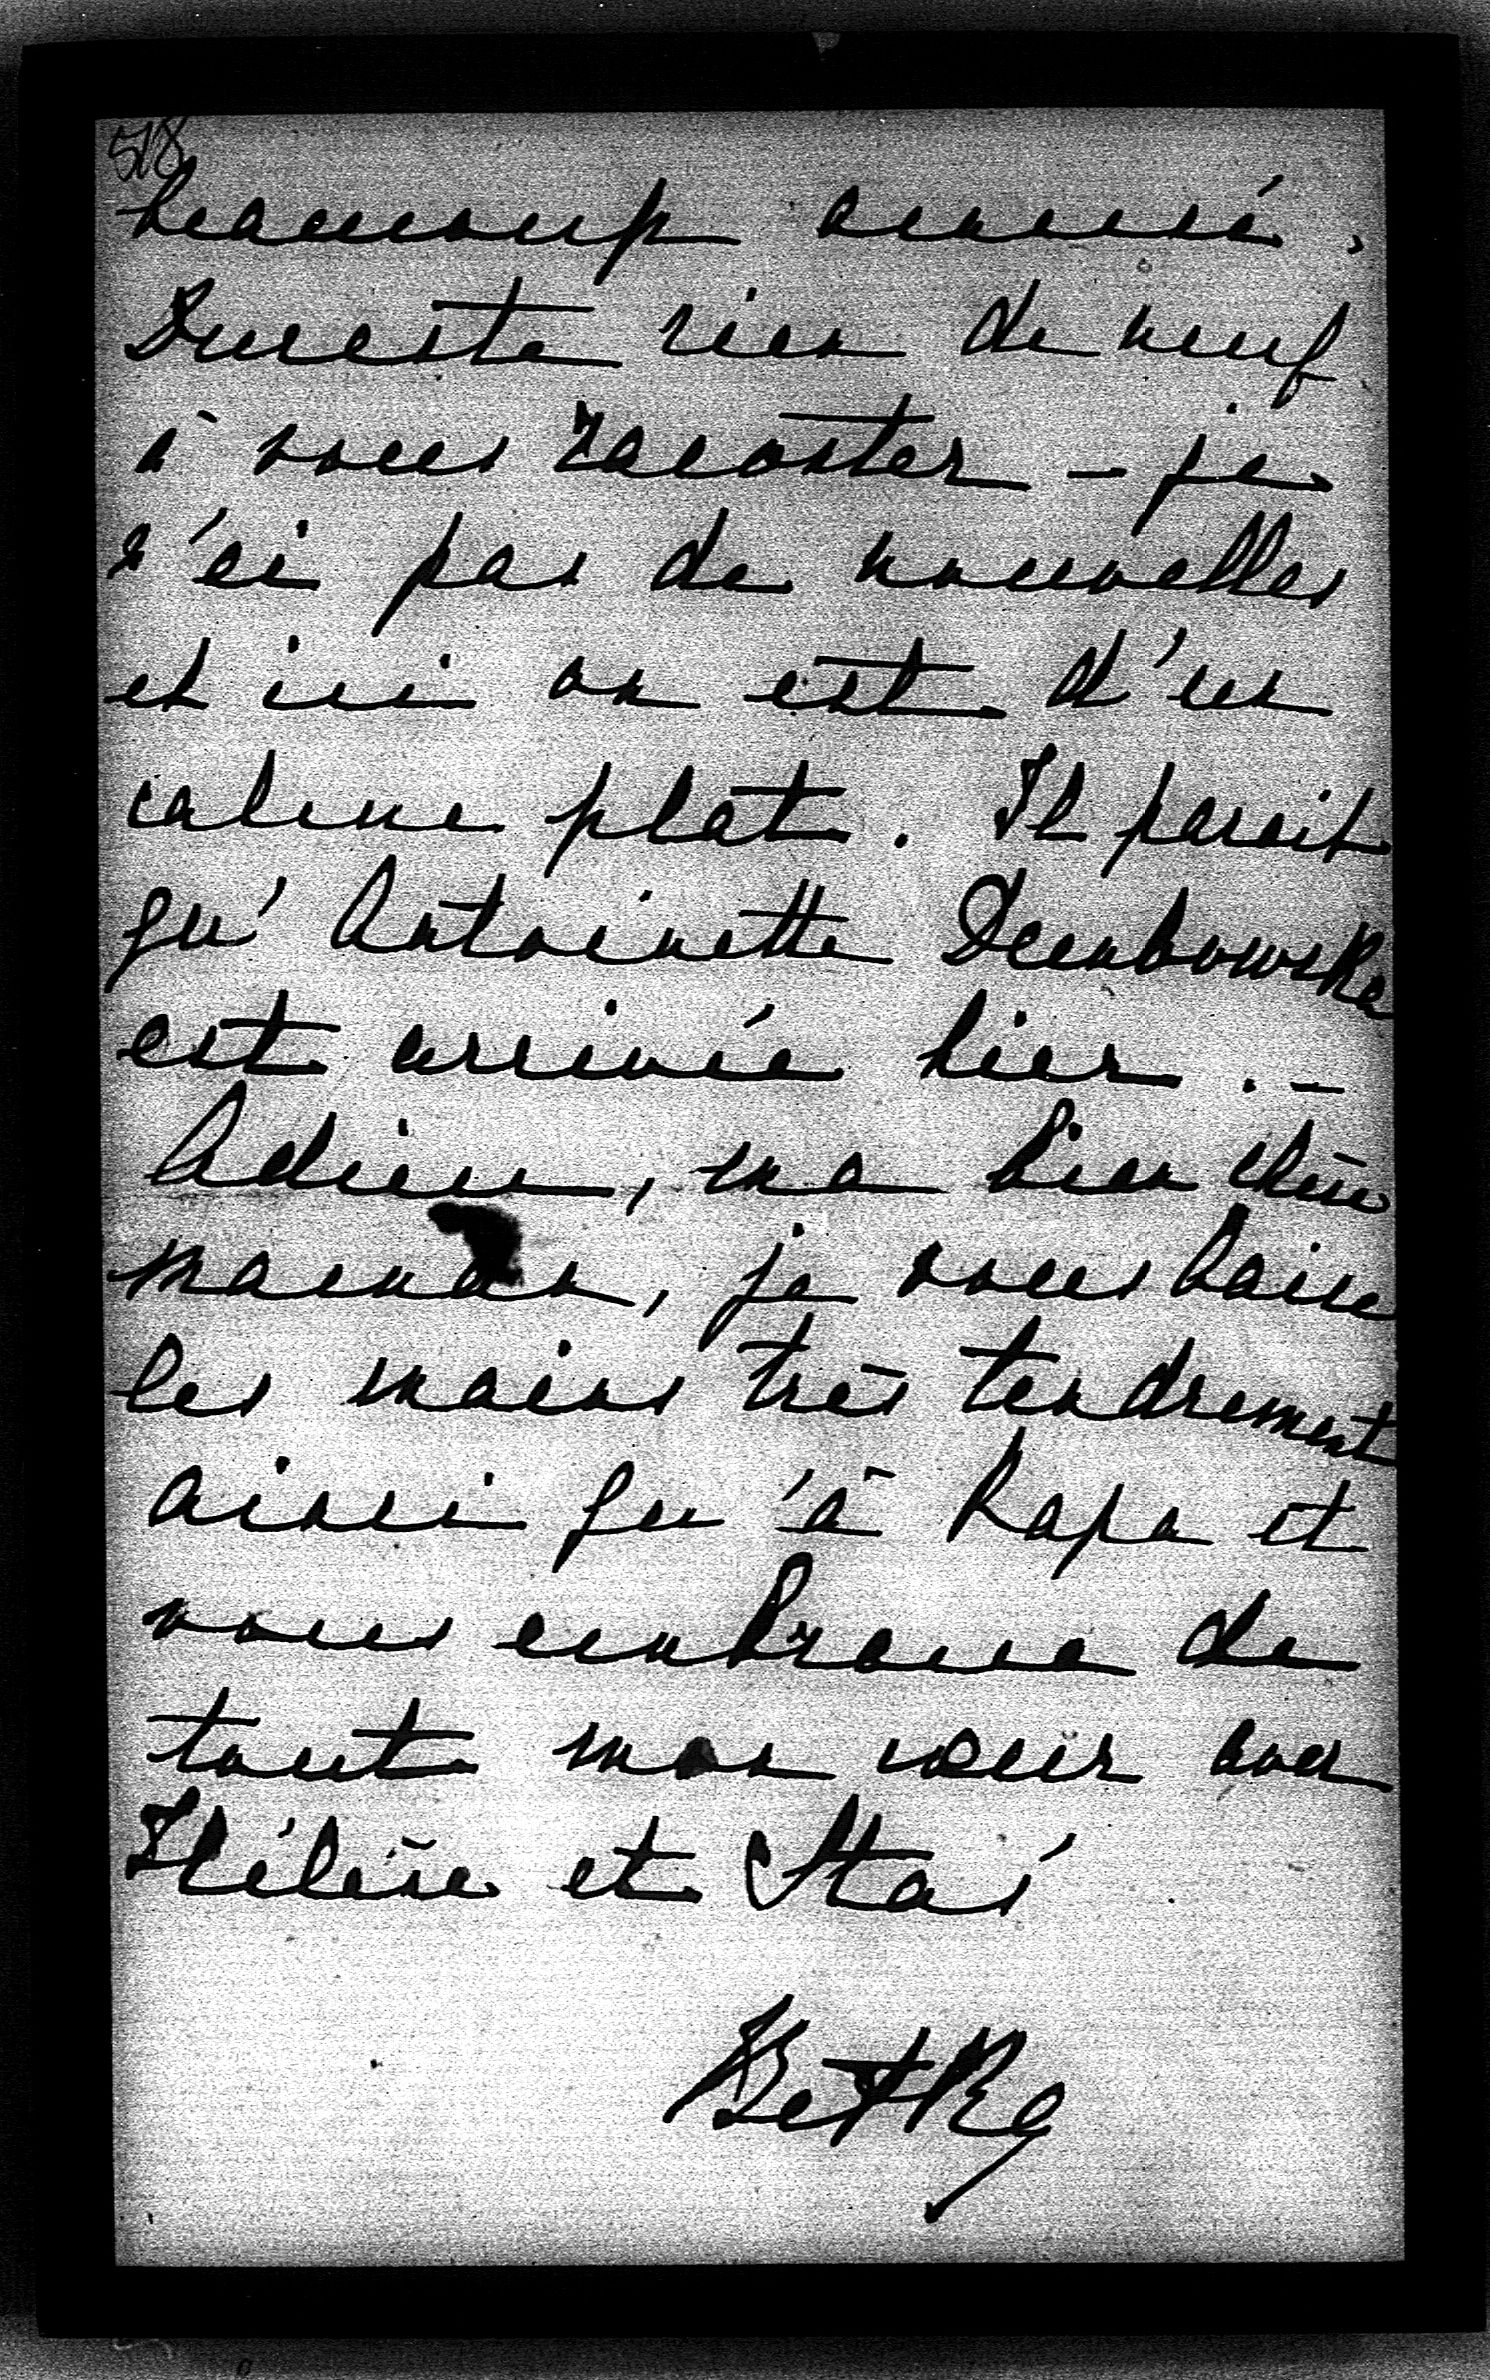 518
beaucoup amusé.
Dureste rien de neuf
à vous raconter – je
n'ai pas de nouvelles
et ici on est d'un
calme plat. Il parait
qu'Antoinette Dembowska
est arrivée hier. –
Adieu, ma bien chère
maman, je vous baise
les mains très tendrement
ainsi qu'à Papa et
vous embrasse de
tout mon cœur avec
Hélène et Staś
Betka